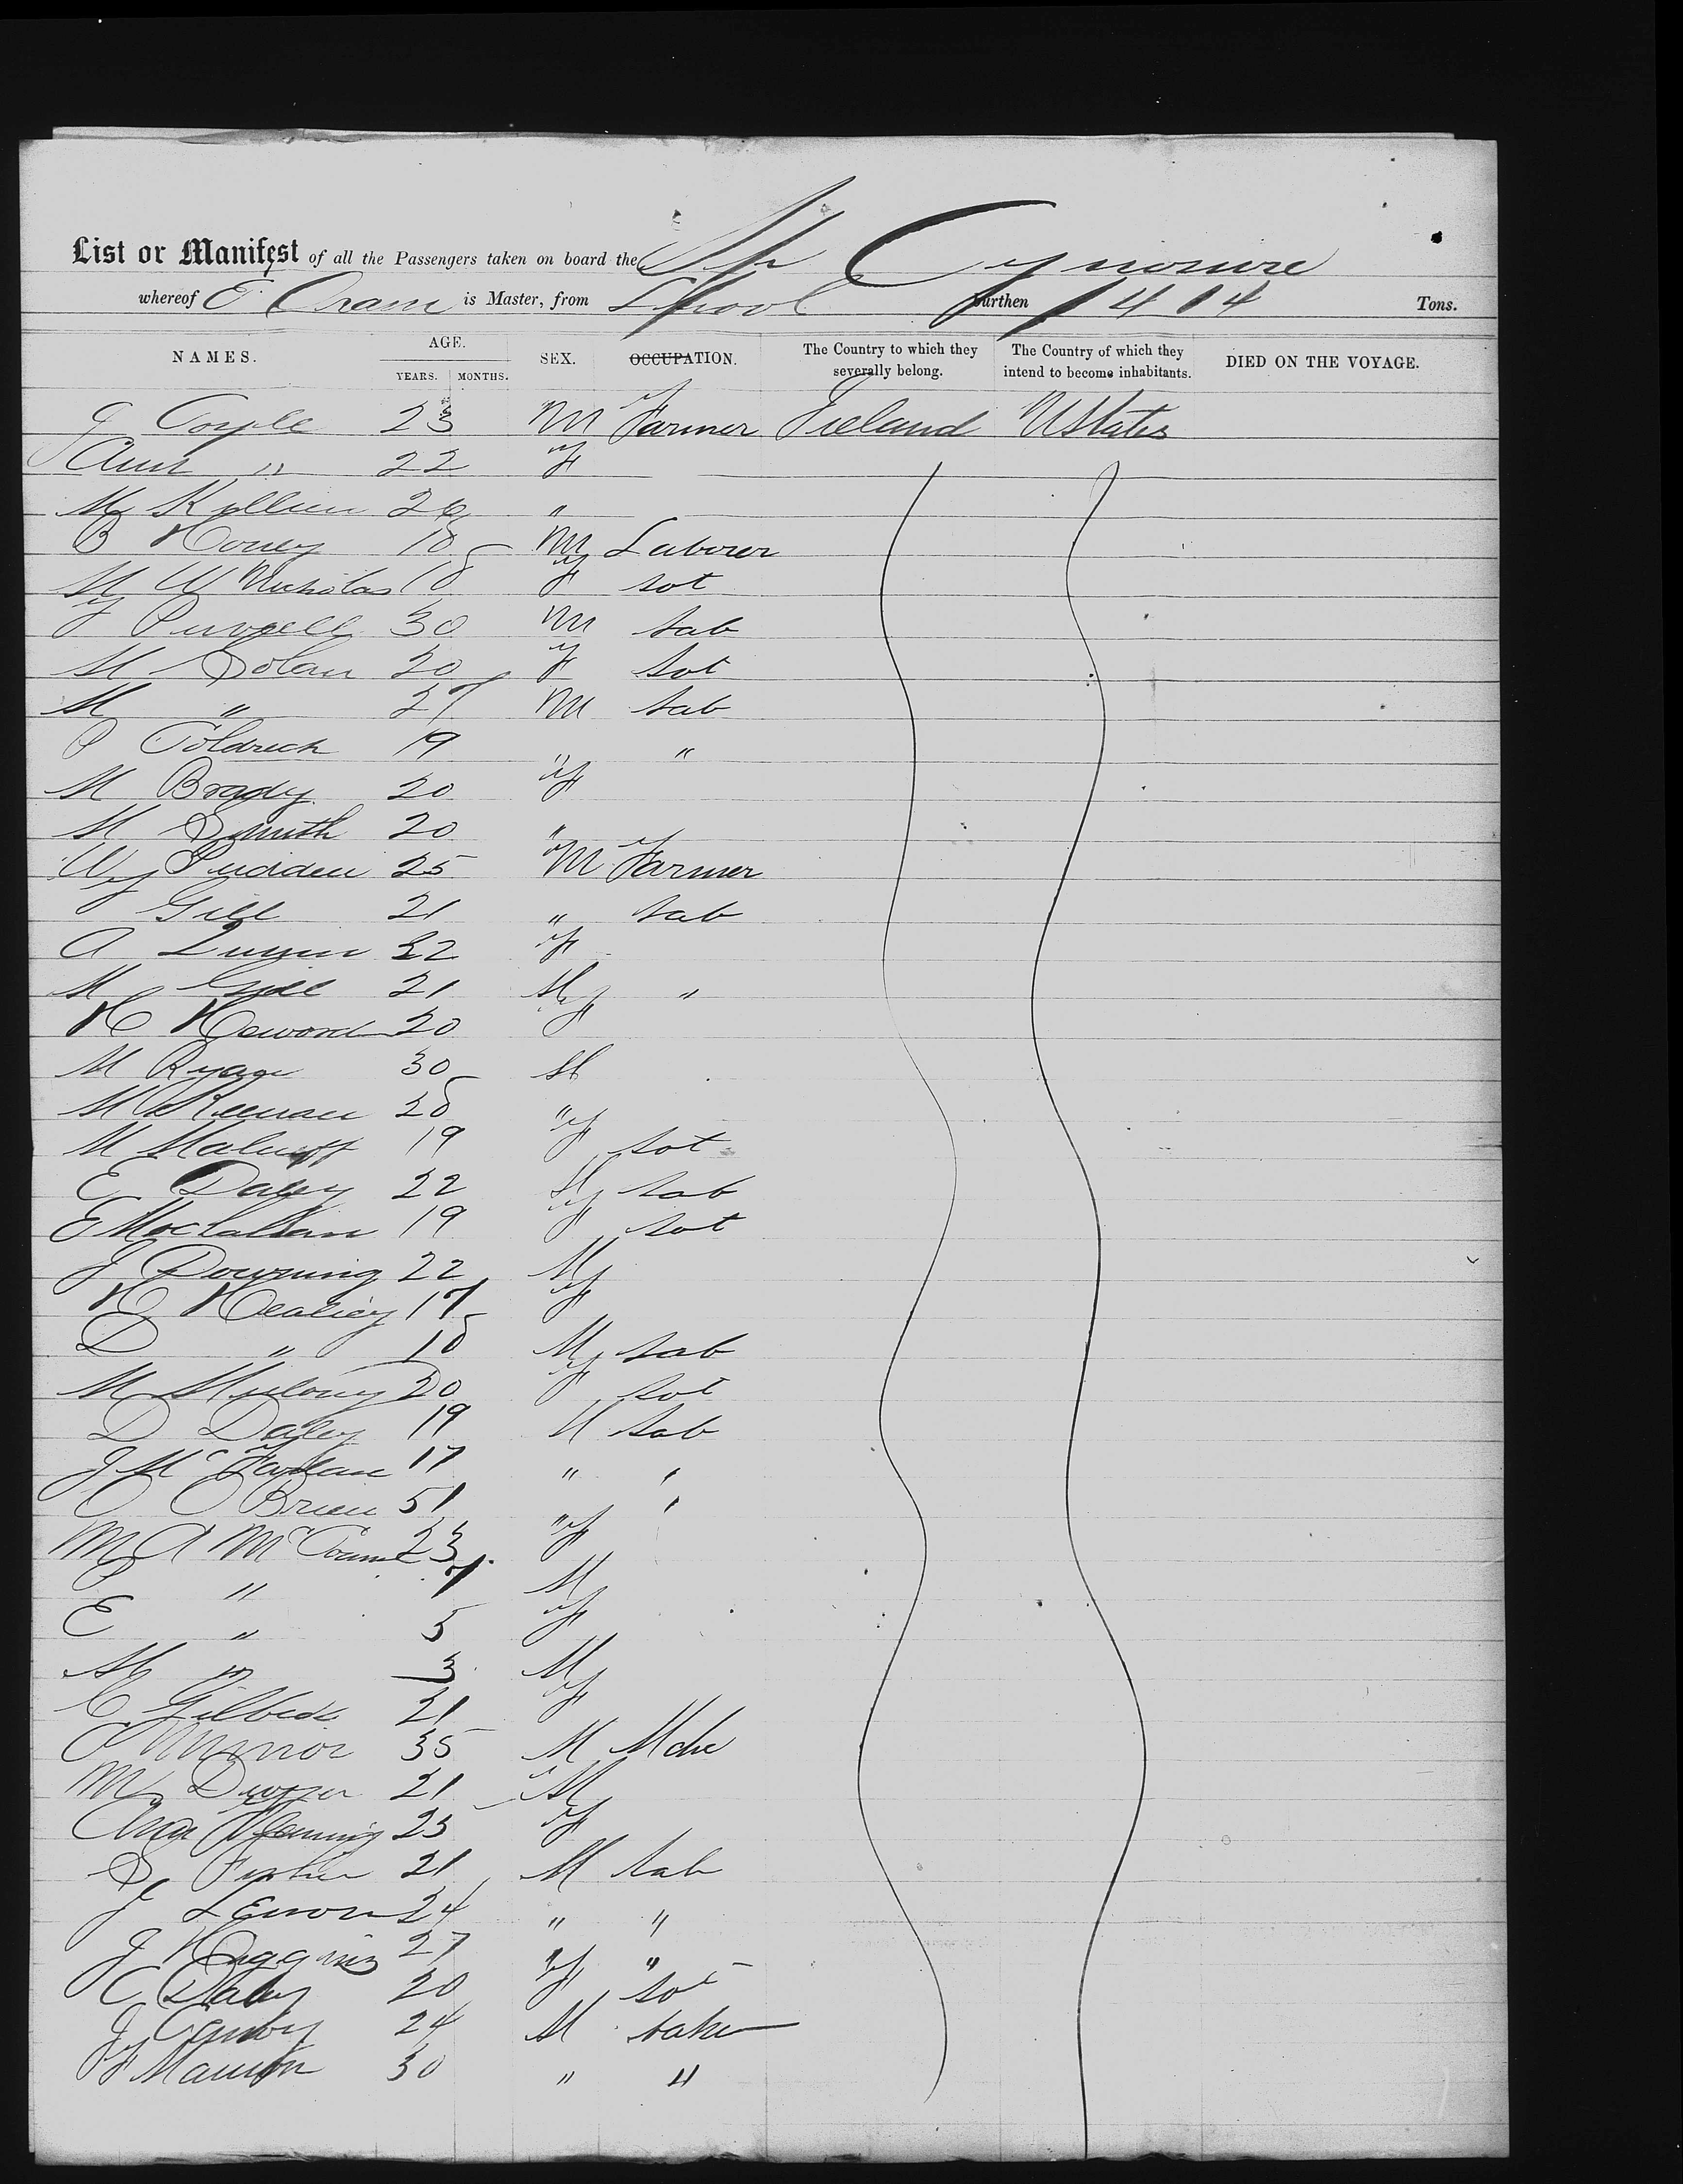 List or Manifest of all the Passengers taken on board the Sh Cynosure
whereof E Cram is Master, from Lpool Burthen 1414 Tons.
NAMES. AGE. SEX. OCCUPATION. The Country to which they severally belong. The Country of which they intend to become inhabitants. DIED ON THE VOYAGE.
YEARS. MONTHS.
J Coyle 23 M Farmer Ireland UStates
Ann " 22 F
M Killien 26 "
B Horey 18 M Laborer
M McNicholas 18 F sot
J Purcell 30 M Lab
M Dolan 20 F sot
M " 27 M Lab
P Coldrick 19 " "
M Brady 20 F
M Smith 20 "
Wm 25 M Farmer
Gill 21 " Lab
A Dunn 22 F
M Gill 21 M "
H Heword 20 F
M Ryan 30 M
M Keenan 28 "
M 19 F sot
E Daley 22 M Lab
E 19 F sot
J Downing 22 M
H Healiey 17 F
D " 18 M Lab
M Mulony 20 F sot
D Daley 19 M Lab
J McFarlane 17 " "
C O Brien 51 " "
M A McCann 23 F
P " 7 M
E " 5 F
M " 3 M
C 21 F
O Minnor 35 M Mche
M Dwyer 21 M
Ann Fleming 23 F
S 21 M Lab
J Lenon 24 " "
J Huggins 27 " "
C Daley 20 F sot
J 24 M Baker
F Mannion 30 " "